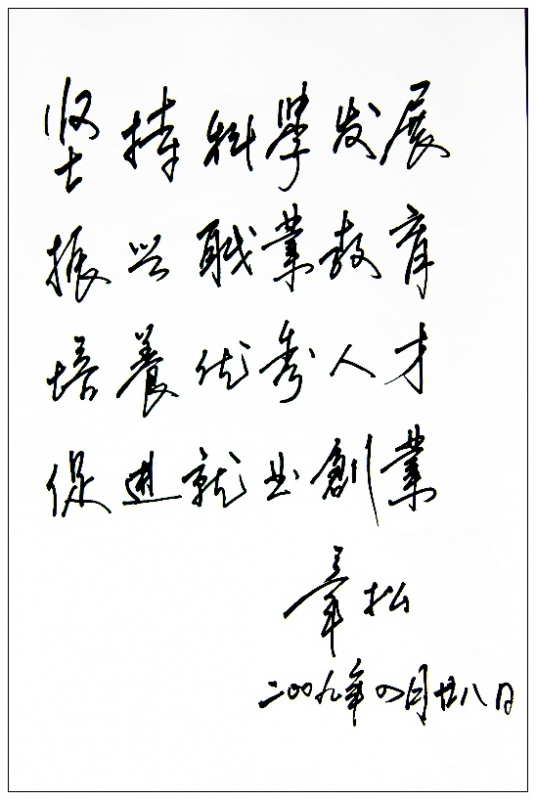 坚持科學发展
振兴职業教育
培養优秀人才
促進就业創業
章松
二〇〇九年四月廿八日